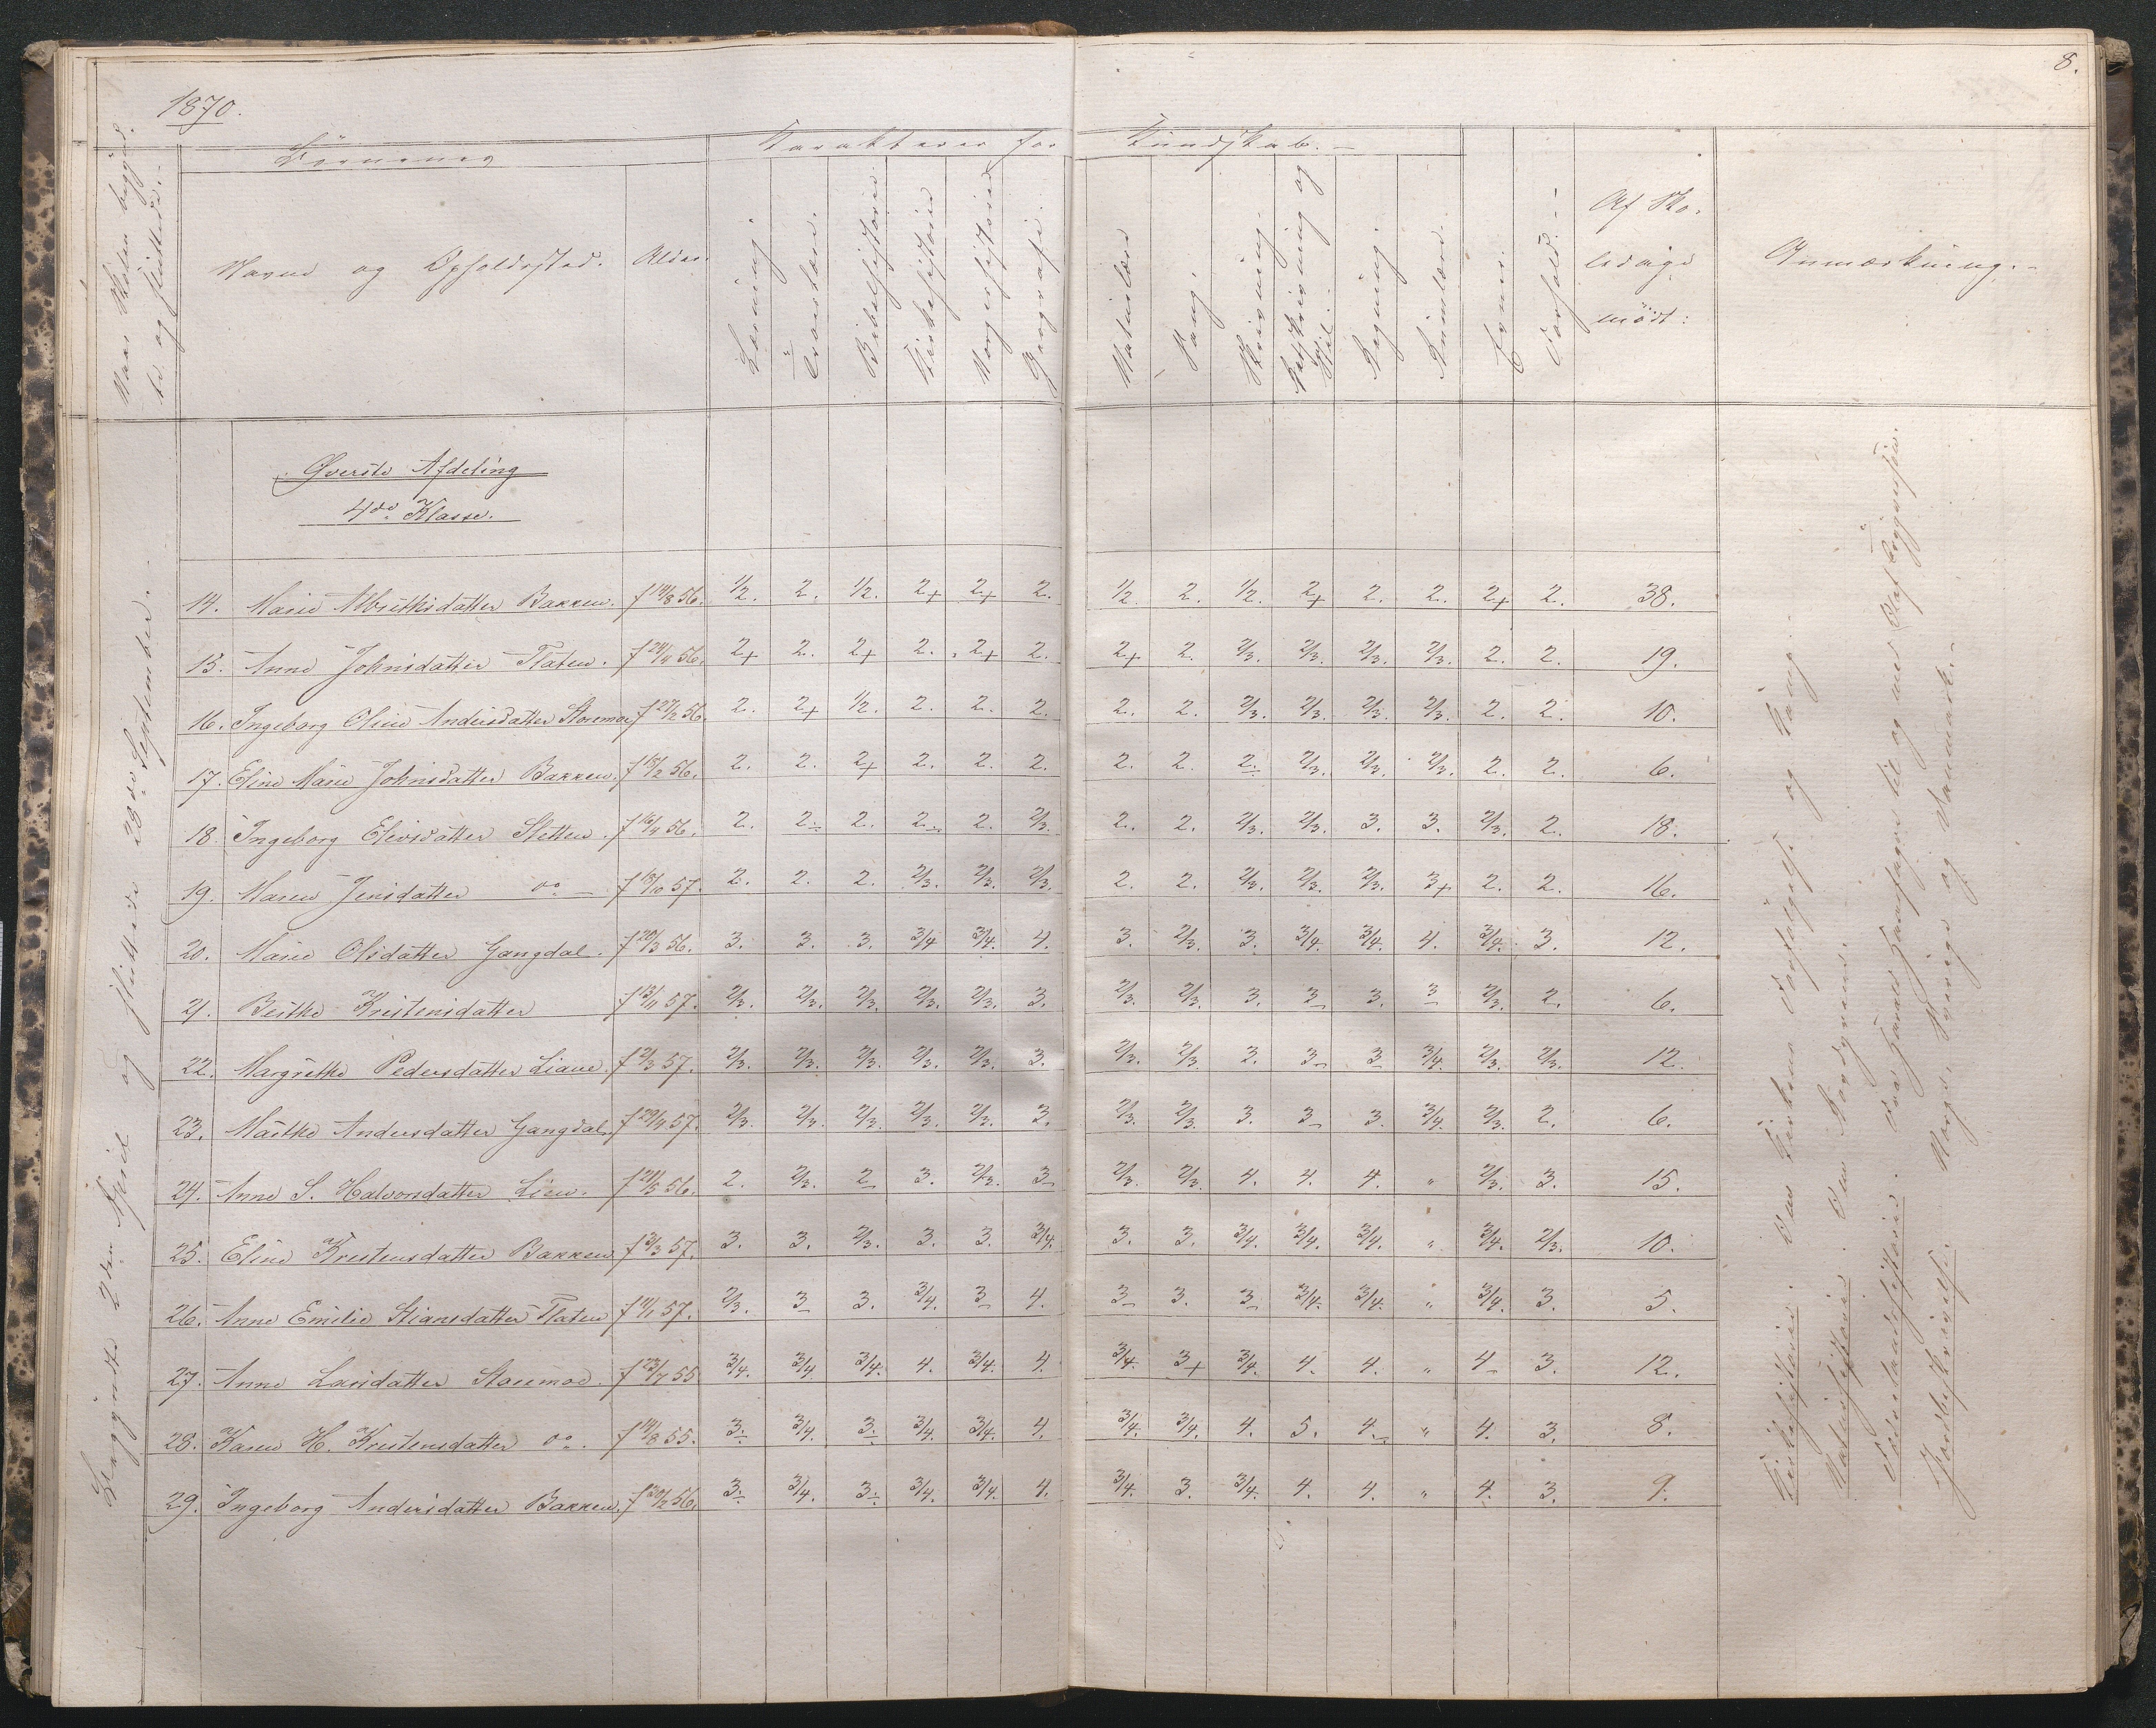 8.
1870.
Naar Skolen begynd-
te og sluttede.-
Börnenes
Karakterer for
Kundskab.-
Navne og Opholdssted.
Alder.
Læsning.
Troeslære.
Bibelhistorie
Kirkehistorie
Norgeshistorie
Geografi.
Naturlære
Sang
Skrivning.
Retskrivning og
Stil.
Regning.
Evner.
Forhold.-
Af Sko-
ledage
mödt:
Anmærkning.-
Øverste Afdeling
4de Klasse.
Begyndte 2den April og sluttede 28de September.-
14. Marie Albrethsdatter Bakken. f 14/8 56. 1/2. 2. 1/2. 2+ 2+ 2. 1/2. 2. 1/2. 2+ 2. 2. 2+ 2. 38.
15. Anne Johnsdatter Flaten. f 24/4 56. 2+ 2. 2+ 2. 2+ 2. 2+ 2. 2/3. 2/3. 2/3. 2/3. 2. 2. 19.
16. Ingeborg Oline Andersdatter Storemoe f 27/2 56. 2. 2+ 1/2. 2. 2. 2. 2. 2. 2/3. 2/3. 2/3. 2/3. 2. 2. 10.
17. Eline Marie Johnsdatter Bakken. f 18/2 56. 2. 2. 2+ 2. 2. 2. 2. 2. 2. 2/3. 2/3. 2/3. 2. 2. 6.
18. Ingeborg Elivsdatter Sletten. f 16/4 56. 2. 2. 2. 2. 2. 2/3. 2. 2. 2/3. 2/3. 3. 3. 2/3. 2. 18.
19. Maren Jensdatter do - f 18/10 57. 2. 2. 2. 2/3. 2/3. 2/3. 2. 2. 2/3. 2/3. 2/3. 3+ 2. 2. 16.
20. Marie Olsdatter Gangdal. f 20/3 56. 3. 3. 3. 3/4 3/4. 4. 3. 2/3. 3. 3/4. 3/4. 4. 3/4. 3. 12.
21. Berthe Kristensdatter f 13/11 57. 2/3. 2/3. 2/3. 2/3. 2/3. 3. 2/3. 2/3. 3. 3 3. 3 2/3. 2. 6.
22. Margrethe Pedersdatter Liane. f 2/3 57. 2/3. 2/3. 2/3. 2/3. 2/3. 3. 2/3. 2/3 3. 3 3 3/4. 2/3. 2/3. 12.
23. Marthe Andersdatter Gangdal f 29/4 57. 2/3. 2/3. 2/3. 2/3. 2/3. 3. 2/3. 2/3. 3. 3 3. 3/4. 2/3. 2. 6.
24. Anne S. Halvorsdatter Lien. f 21/5 56. 2. 2/3. 2 3. 2/3. 3 2/3. 2/3. 4. 4. 4. " 2/3. 3. 15.
25. Eline Kristensdatter Bakken f 3/3 57. 3. 3. 2/3. 3. 3. 3/4. 3. 3. 3/4. 3/4. 3/4. " 3/4. 2/3. 10.
26. Anne Emilie Stiansdatter Flaten f 4/1 57. 2/3. 3 3. 3/4. 3 4. 3 3. 3 3/4. 3/4. " 3/4. 3. 5.
27. Anne Larsdatter Storemoe. f 23/7 55 3/4. 3/4 3/4. 4. 3/4. 4. 3/4. 3+ 3/4. 4. 4. " 4 3. 12.
28. Karen H. Kristensdatter do. f 14/8 55. 3. 3/4. 3. 3/4. 3/4. 4. 3/4. 3/4. 4. 5. 4. " 4. 3. 8.
29. Ingeborg Andersdatter Bakken. f 20/2 56. 3. 3/4. 3. 3/4. 3/4. 4. 3/4. 3. 3/4. 4. 4. " 4. 3. 9.
Kirkehistorie: Den Kirkens Forfølgelse og Sang.-
Naturhistorie.
Fædrelandshistorie. Fra Harald Haarfagre til og med Olaf
Jordbeskrivelse. Norge, Sverige og Danmark.-